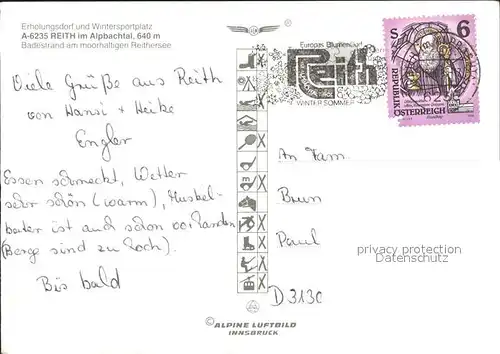 Erholungsdorf und Wintersportplatz
A-6235 REITH im Alpbachtal, 640 m
Badestrand am moorhaltigen Reithersee
Viele Grüße aus Reith
von Hansi + Heike
Engler
Essen schmeckt, Wetter
sehr schön (warm), Muskel-
kater ist auch schon vorhanden
(Berge sind zu hoch).
Bis bald
Europas Blumendorf
Reith
WINTER SOMMER
S 6
REPUBLIK
ÖSTERREICH
An Fam.
Brun
Paul
D 3130
privacy protection
watermark
© ALPINE LUFTBILD
INNSBRUCK